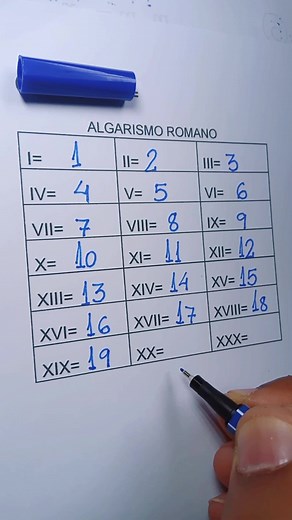 ALGARISMO ROMANO
I= 1 II= 2 III= 3
IV= 4 V= 5 VI= 6
VII= 7 VIII= 8 IX= 9
X= 10 XI= 11 XII= 12
XIII= 13 XIV= 14 XV= 15
XVI= 16 XVII= 17 XVIII= 18
XIX= 19 XX= XXX=